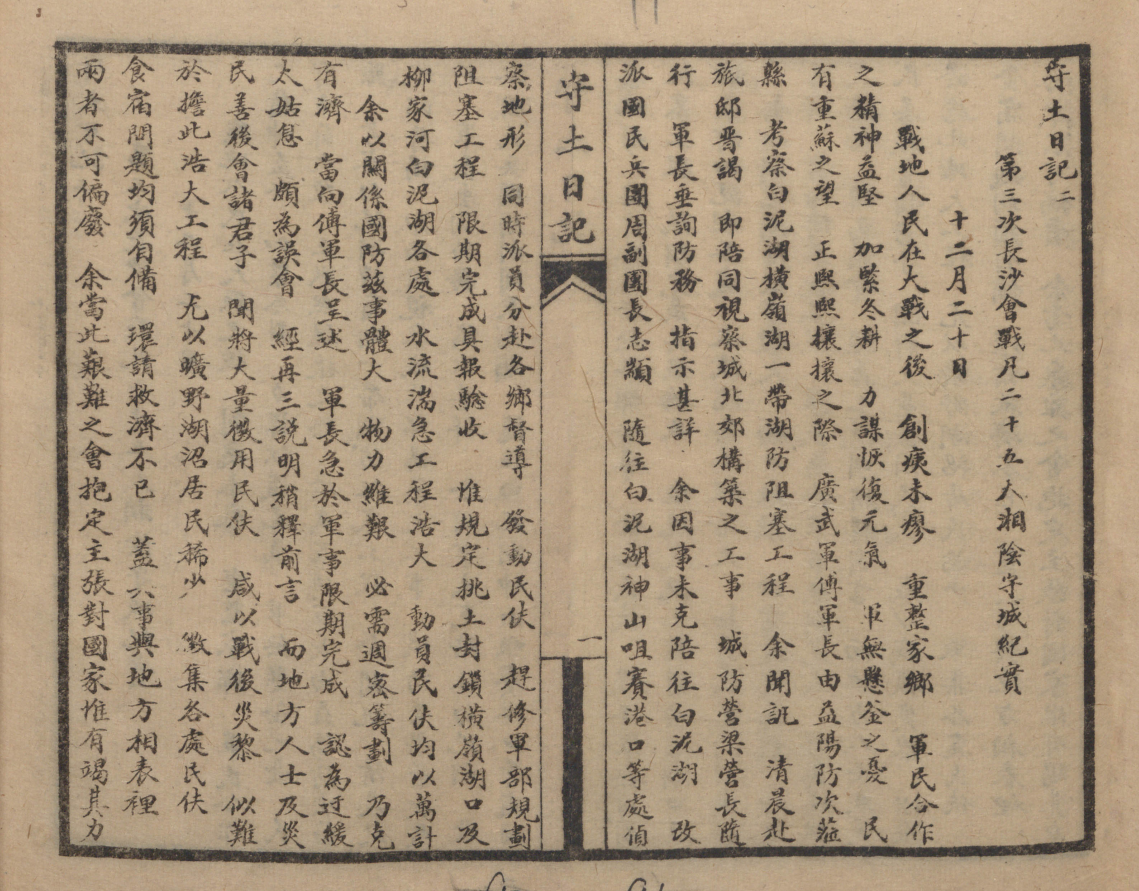 守土日記二
第三次長沙會戰凡二十五天湘陰守城紀實
十二月二十日
戰地人民在大戰之後 創痍未廖 重整家鄉 軍民合作
之精神益堅 加緊冬耕 力謀恢復元氣 軍無懸釜之憂 民
有重蘇之望 正熙熙攘攘之際 廣武軍傅軍長由益陽防次蒞
縣 考察白泥湖橫嶺湖一帶湖防阻塞工程 余聞訊 清晨赴
旅邸晋謁 即陪同視察城北郊構築之工事 城防營梁營長隨
行 軍長垂詢防務 指示甚詳 余因事未克陪往白泥湖 改
派國民兵團周副團長志顓 隨往白泥湖神山咀賽港口等處偵
守土日記
一
察地形 同時派員分赴各鄉督導 發動民伕 趕修軍部規劃
阻塞工程 限期完成具報驗收 惟規定挑土封鎖橫嶺湖口及
柳家河白泥湖各處 水流湍急工程浩大 動員民伕均以萬計
余以關係國防茲事體大 物力維艱 必需週密籌劃 乃克
有濟 當向傅軍長呈述 軍長急於軍事限期完成 認為迂緩
太姑息 頗為誤會 經再三説明稍釋前言 而地方人士及災
民善後會諸君子 聞將大量徵用民伕 咸以戰後災黎 似難
於擔此浩大工程 尤以曠野湖沼居民稀少 徵集各處民伕
食宿問題均須自備 環請救濟不已 蓋 事與地方相表裡
兩者不可偏廢 余當此艱難之會抱定主張對國家惟有竭其力